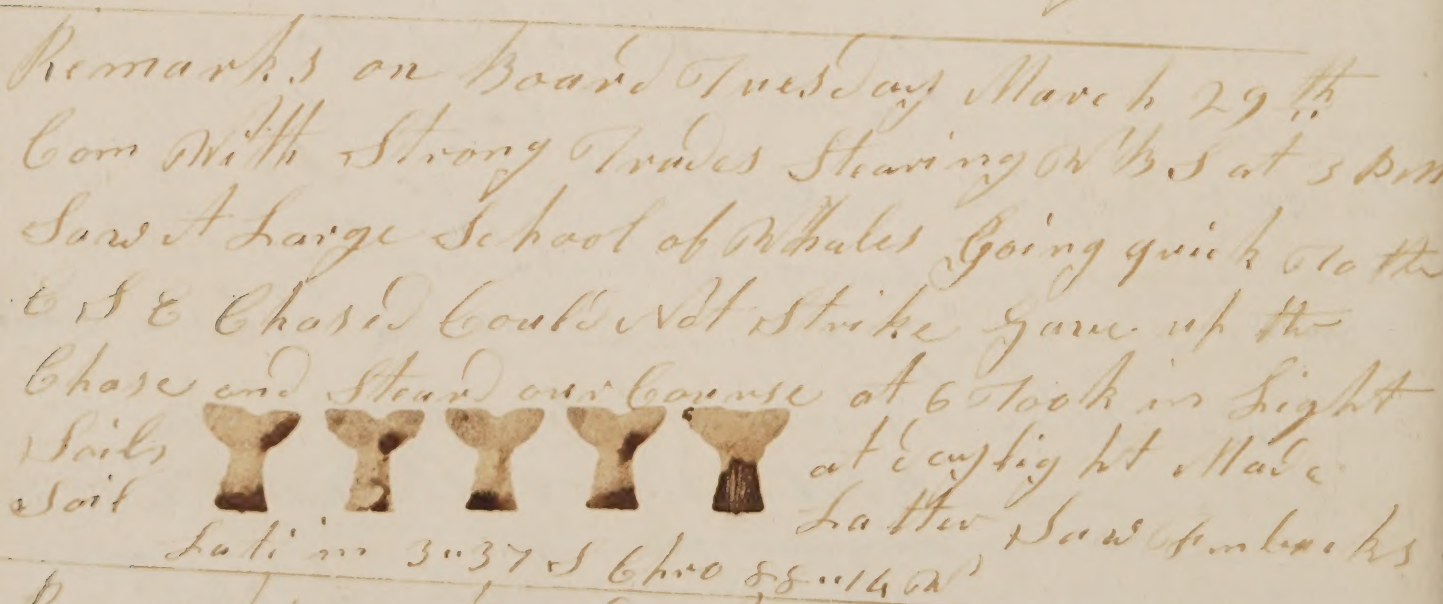 Remarks on Board Tuesday March 29th
Com With Strong Trades Stearing W B S at 3 PM
Saw A Large School of Whales Going quick To the
E S E Chased Could Not Strike gave up the
Chase and Steard our Course at 6 Took in Light
Sails at daylight Made
Sail Latter Saw
Lati in 3"37 S Chro 88"14 W